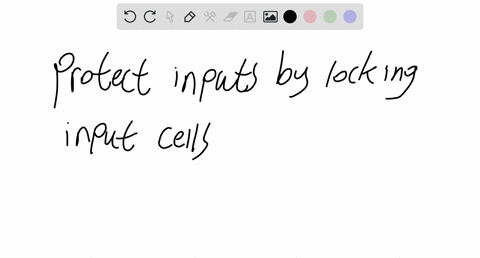 Protect inputs by locking
input cells